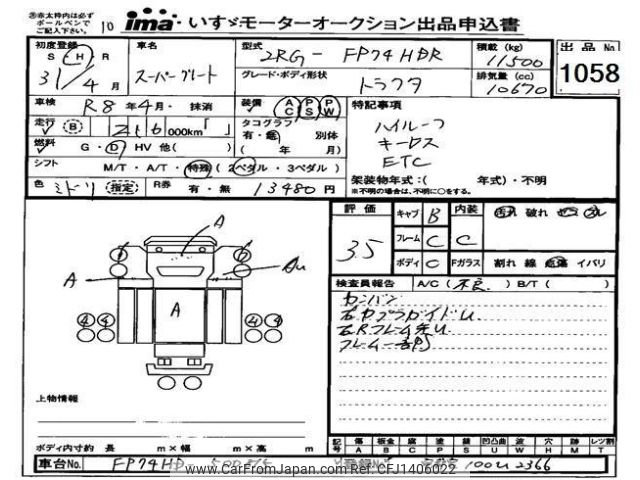 ※赤太枠内は必ず
ボールペンで
ご記入下さい。
10
ima いすゞモーターオークション出品申込書
初度登録
S・H・R
31/4月
車名
スーパーグレート
型式
2RG- FP74HDR
積載 (kg)
11500
グレード・ボディ形状
トラクタ
排気量 (cc)
10670
出品No
1058
車検 R8年4月・ 抹消
装備 AC PS PW
特記事項
ハイルーフ
キーレス
ETC
走行 B 216 000km「 」
タコグラフ
有・無 別体
( 年 月)
燃料 G・D HV 他( )
シフト M/T・A/T・特殊(2ペダル・3ペダル)
架装物年式:( 年式)・不明
※不明の場合は、不明に○をする。
色 ミドリ 指定 R券 有・無 13480円
評価
3.5
キャブ B 内装 C
フレーム C
ボディ C Fガラス
汚れ 破れ コゲ スレ
割れ 線 点傷 イバリ
検査員報告 A/C(不良) B/T( )
カンバン
フレーム一部S
A
A
A
上物情報
ボディ内寸約 長 m×幅 m×高 m
記号 傷 板金 腐 塗 錆 凹凸曲 波 穴 跡 レンズ割
A B C P S U W H M T
車台No. FP74HD
www.CarFromJapan.com Ref: CFJ1406022
100 U 2366